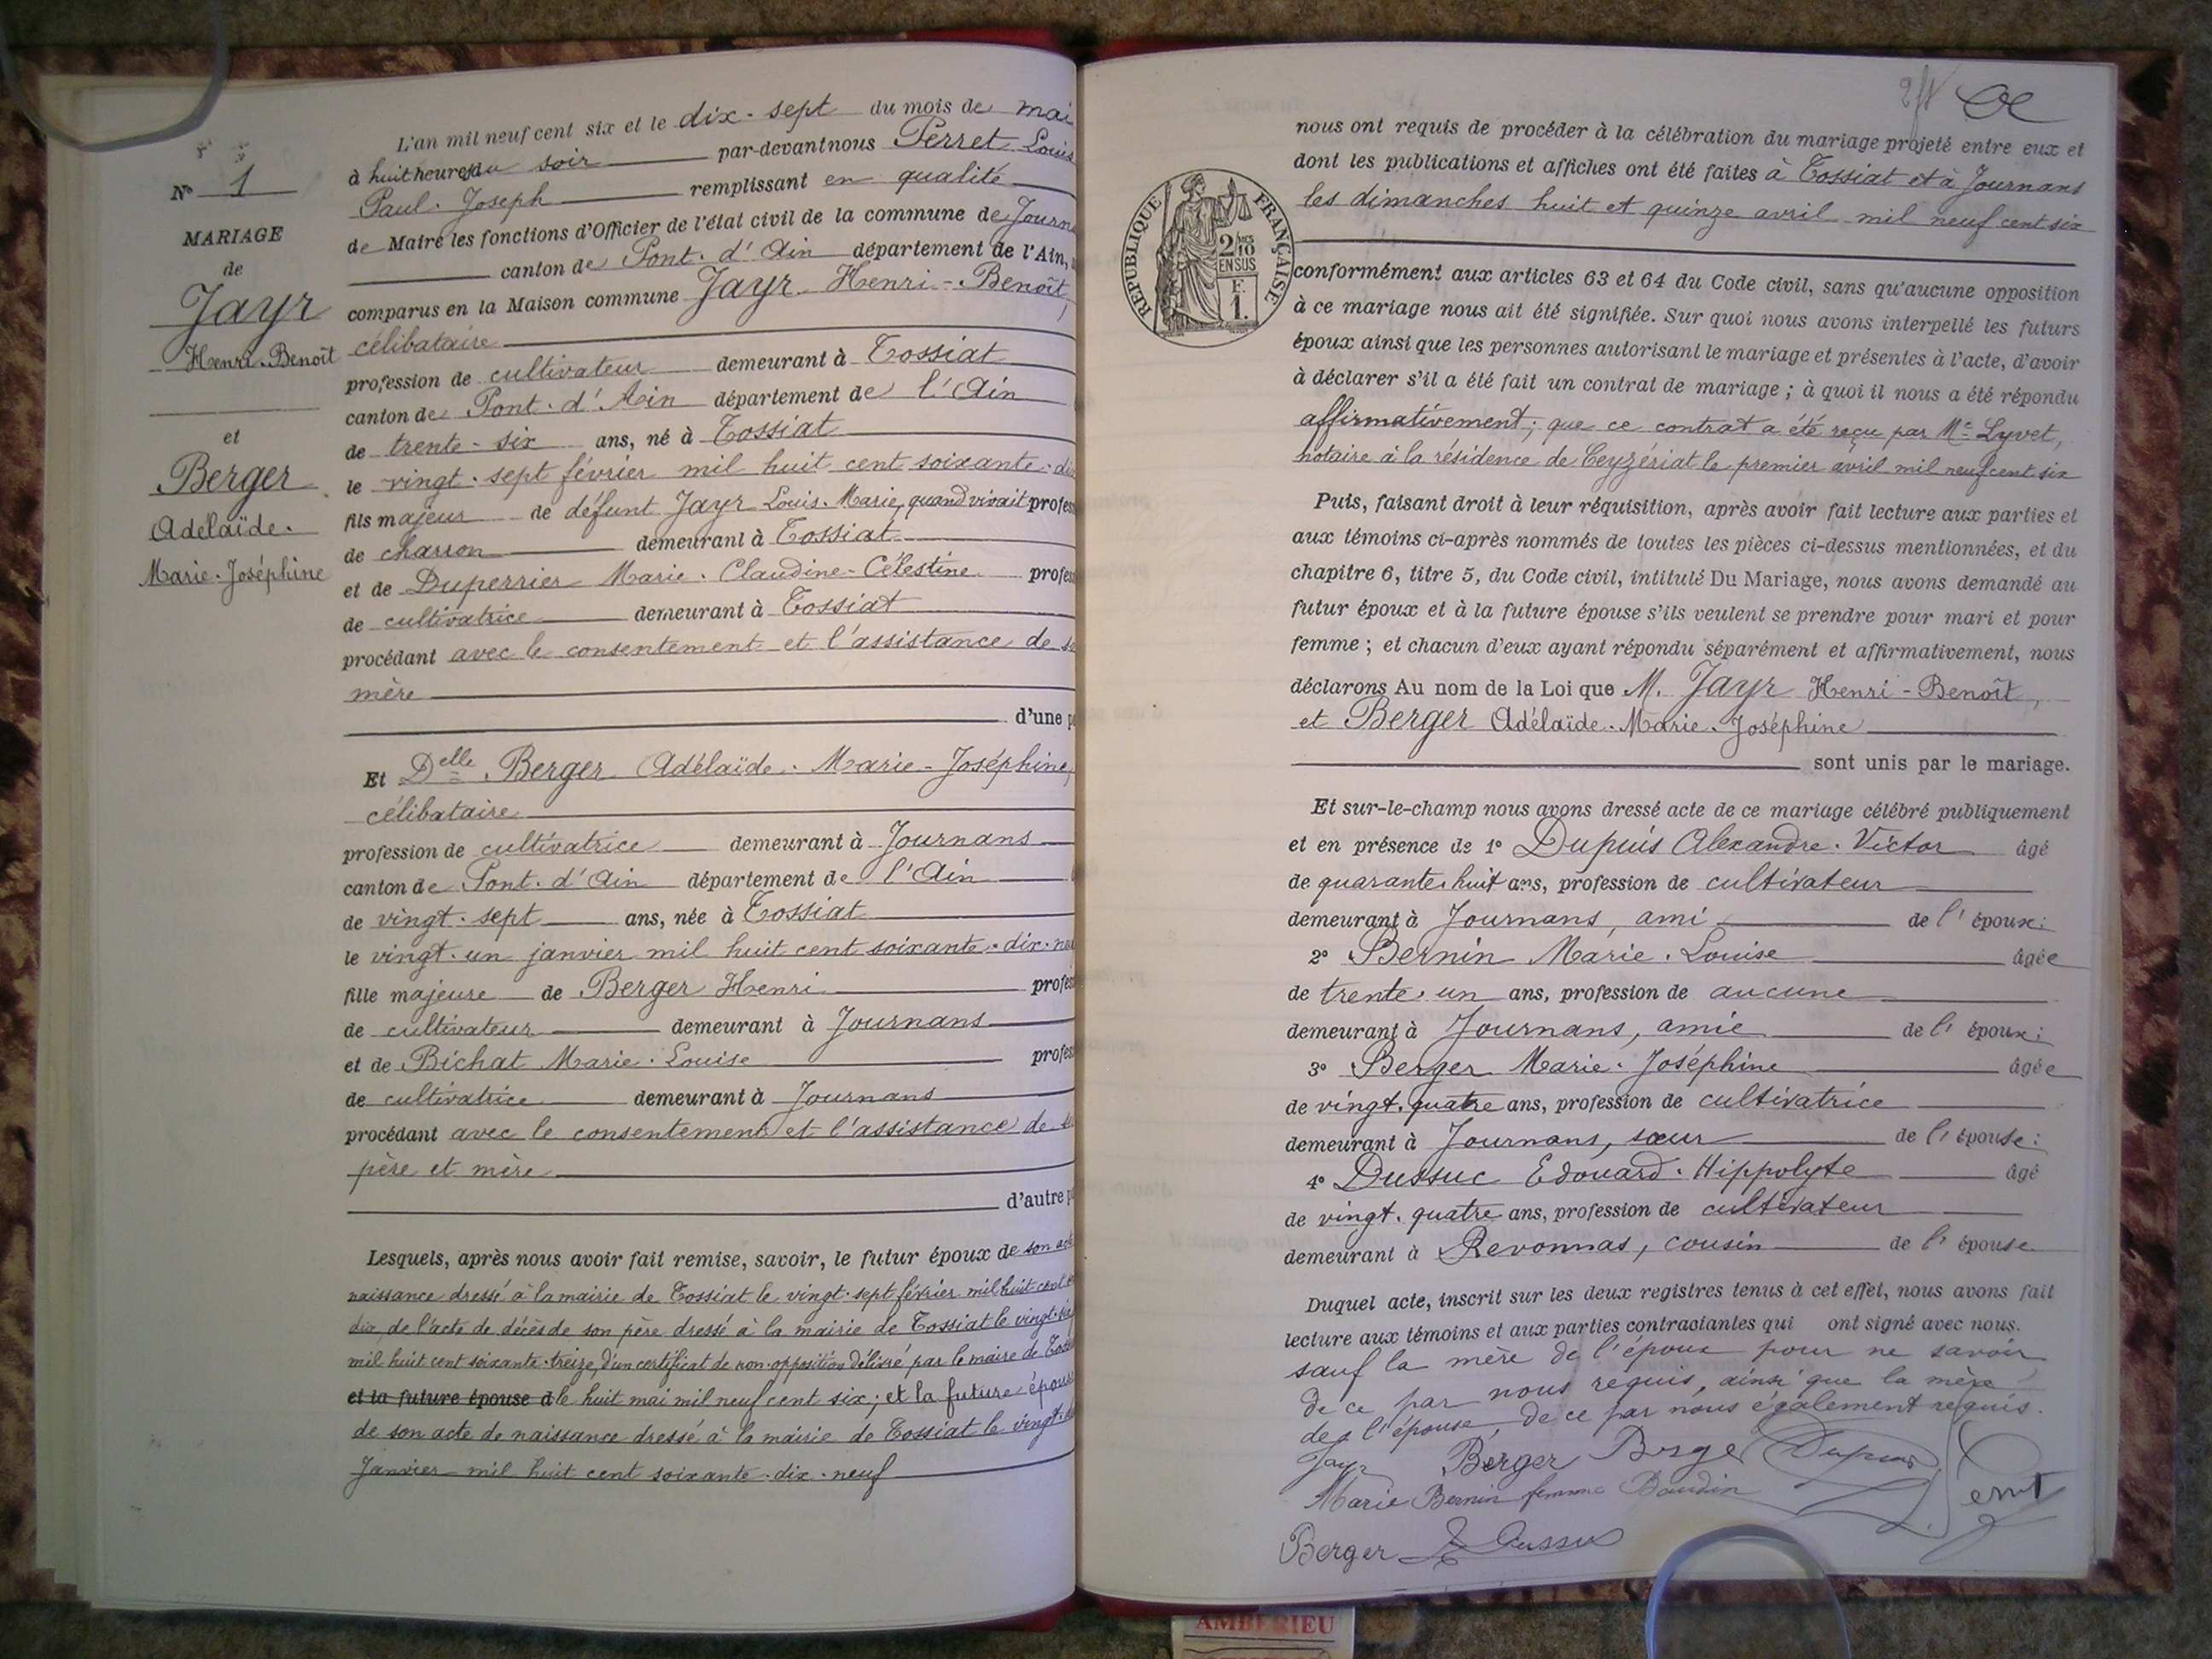 L'an mil neuf cent six et le dix-sept du mois de mai
à huit heures du soir par-devant nous Perret Louis
Paul-Joseph remplissant en qualité
de Maire les fonctions d'Officier de l'état civil de la commune de Journ
canton de Pont-d'Ain département de l'Ain,
comparus en la Maison commune Jayr Henri-Benoît,
célibataire
profession de cultivateur demeurant à Tossiat
canton de Pont-d'Ain département de l'Ain
de trente-six ans, né à Tossiat
le vingt-sept février mil huit cent soixante-di
fils majeur de défunt Jayr Louis-Marie, quand vivait profes
de charron demeurant à Tossiat
et de Duperrier Marie-Claudine-Célestine profes
de cultivatrice demeurant à Tossiat
procédant avec le consentement et l'assistance de s
mère
d'une p
Et Delle Berger Adélaïde-Marie-Joséphine,
célibataire
profession de cultivatrice demeurant à Journans
canton de Pont-d'Ain département de l'Ain
de vingt-sept ans, née à Tossiat
le vingt-un janvier mil huit cent soixante-dix-ne
fille majeure de Berger Henri profes
de cultivateur demeurant à Journans
et de Bichat Marie-Louise profes
de cultivatrice demeurant à Journans
procédant avec le consentement et l'assistance de s
père et mère
d'autre p
Lesquels, après nous avoir fait remise, savoir, le futur époux de son ac
naissance dressé à la mairie de Tossiat le vingt-sept février mil huit cent
dix, de l'acte de décès de son père dressé à la mairie de Tossiat le vingt
mil huit cent soixante-treize, d'un certificat de non-opposition délivré par le maire de Toss
et la future épouse d le huit mai mil neuf cent six; et la future épous
de son acte de naissance dressé à la mairie de Tossiat le vingt
Janvier mil huit cent soixante-dix-neuf
N° 1
MARIAGE
de
Jayr
Henri-Benoît
et
Berger
Adélaïde-
Marie-Joséphine
nous ont requis de procéder à la célébration du mariage projeté entre eux et
dont les publications et affiches ont été faites à Tossiat et à Journans
les dimanches huit et quinze avril mil neuf cent six
RÉPUBLIQUE FRANÇAISE
2/10
EN SUS
F.
1.
conformément aux articles 63 et 64 du Code civil, sans qu'aucune opposition
à ce mariage nous ait été signifiée. Sur quoi nous avons interpellé les futurs
époux ainsi que les personnes autorisant le mariage et présentes à l'acte, d'avoir
à déclarer s'il a été fait un contrat de mariage ; à quoi il nous a été répondu
affirmativement; que ce contrat a été reçu par Me Lyvet,
notaire à la résidence de Ceyzériat le premier avril mil neuf cent six
Puis, faisant droit à leur réquisition, après avoir fait lecture aux parties et
aux témoins ci-après nommés de toutes les pièces ci-dessus mentionnées, et du
chapitre 6, titre 5, du Code civil, intitulé Du Mariage, nous avons demandé au
futur époux et à la future épouse s'ils veulent se prendre pour mari et pour
femme ; et chacun d'eux ayant répondu séparément et affirmativement, nous
déclarons Au nom de la Loi que M. Jayr Henri-Benoît,
et Berger Adélaïde-Marie-Joséphine
sont unis par le mariage.
Et sur-le-champ nous avons dressé acte de ce mariage célébré publiquement
et en présence de 1° Dupuis Alexandre-Victor âgé
de quarante-huit ans, profession de cultivateur
demeurant à Journans, ami de l'époux:
2° Bernin Marie-Louise âgée
de trente-un ans, profession de aucune
demeurant à Journans, amie de l'époux:
3° Berger Marie-Joséphine âgée
de vingt-quatre ans, profession de cultivatrice
demeurant à Journans, sœur de l'épouse:
4° Dussuc Edouard-Hippolyte âgé
de vingt-quatre ans, profession de cultivateur
demeurant à Revonnas, cousin de l'épouse
Duquel acte, inscrit sur les deux registres tenus à cet effet, nous avons fait
lecture aux témoins et aux parties contractantes qui ont signé avec nous.
sauf la mère de l'époux pour ne savoir
de ce par nous requis, ainsi que la mère
de l'épouse, de ce par nous également requis.
Jayr Berger Berger Dupuis
Marie Bernin femme Baudin
Berger E Dussuc
AMBERIEU